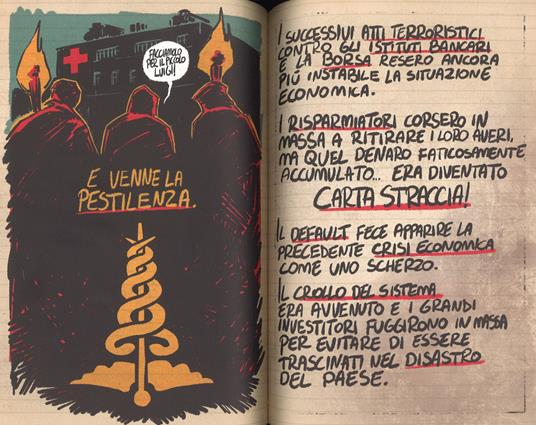 FACCIAMOLO
PER IL PICCOLO
LUIGI!
E VENNE LA
PESTILENZA.
I SUCCESSIVI ATTI TERRORISTICI
CONTRO GLI ISTITUTI BANCARI
E LA BORSA RESERO ANCORA
PIÙ INSTABILE LA SITUAZIONE
ECONOMICA.
I RISPARMIATORI CORSERO IN
MASSA A RITIRARE I LORO AVERI,
MA QUEL DENARO FATICOSAMENTE
ACCUMULATO... ERA DIVENTATO
CARTA STRACCIA!
IL DEFAULT FECE APPARIRE LA
PRECEDENTE CRISI ECONOMICA
COME UNO SCHERZO.
IL CROLLO DEL SISTEMA
ERA AVVENUTO E I GRANDI
INVESTITORI FUGGIRONO IN MASSA
PER EVITARE DI ESSERE
TRASCINATI NEL DISASTRO
DEL PAESE.